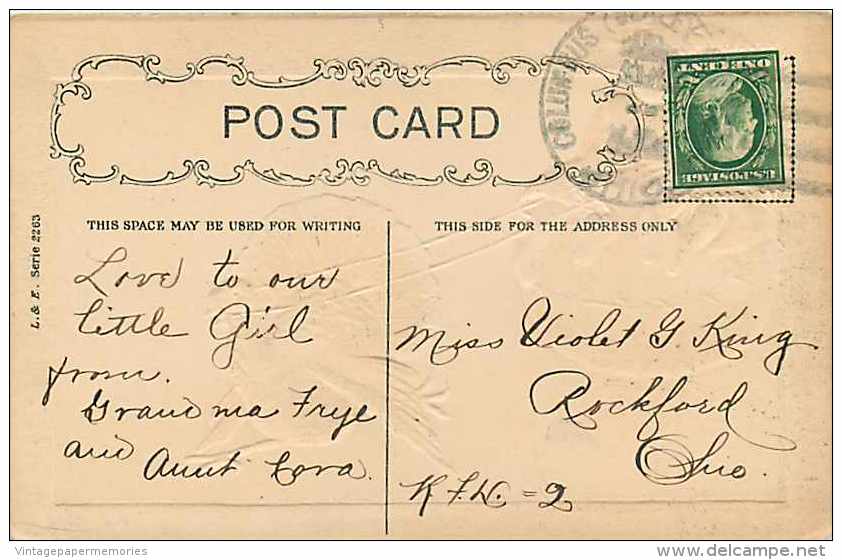 POST CARD
COLUMBUS
ONE CENT
U.S. POSTAGE
THIS SPACE MAY BE USED FOR WRITING
THIS SIDE FOR THE ADDRESS ONLY
L. & E. Serie 2263
Love to our
little Girl
from.
Grandma Frye
and
Aunt Cora.
Miss Violet G. King
Rockford
Ohio.
R.F.D. = 2
Vintagepapermemories
delcampe.net